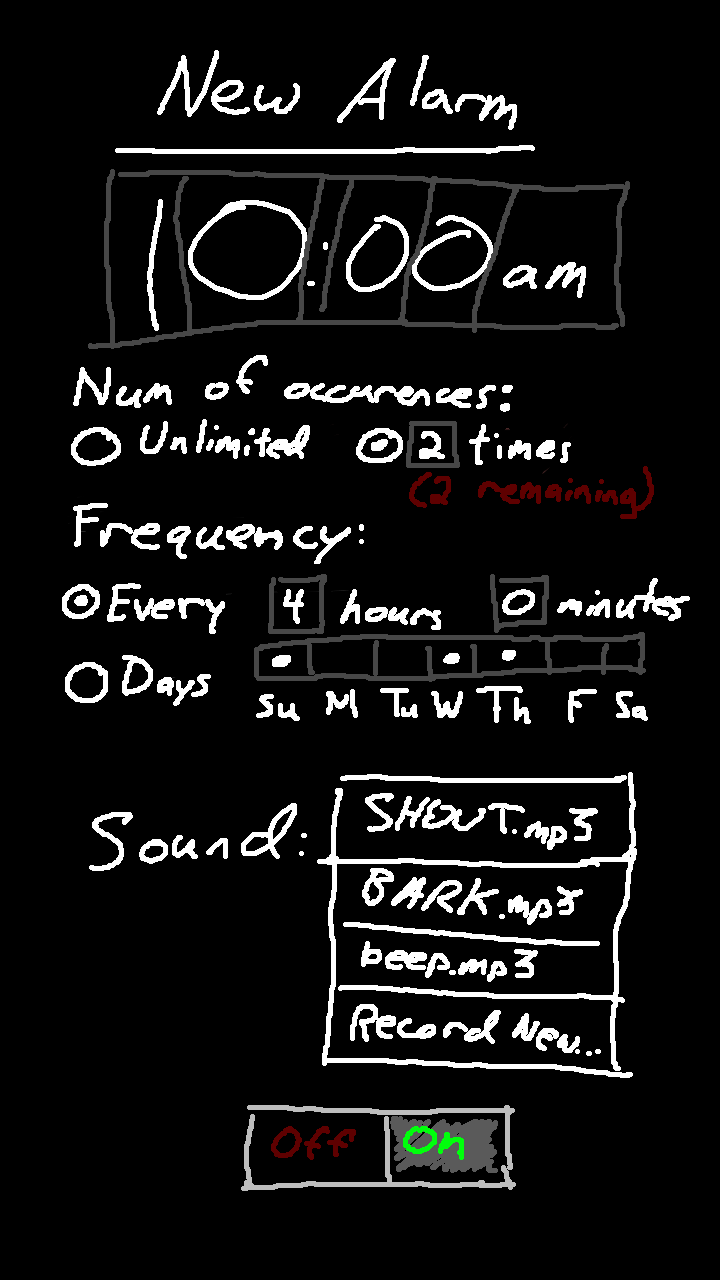 New Alarm
10:00 am
Num of occurences:
Unlimited 2 times
(2 remaining)
Frequency:
Every 4 hours 0 minutes
Days
Su M Tu W Th F Sa
Sound: SHOUT.mp3
BARK.mp3
beep.mp3
Record New...
Off On